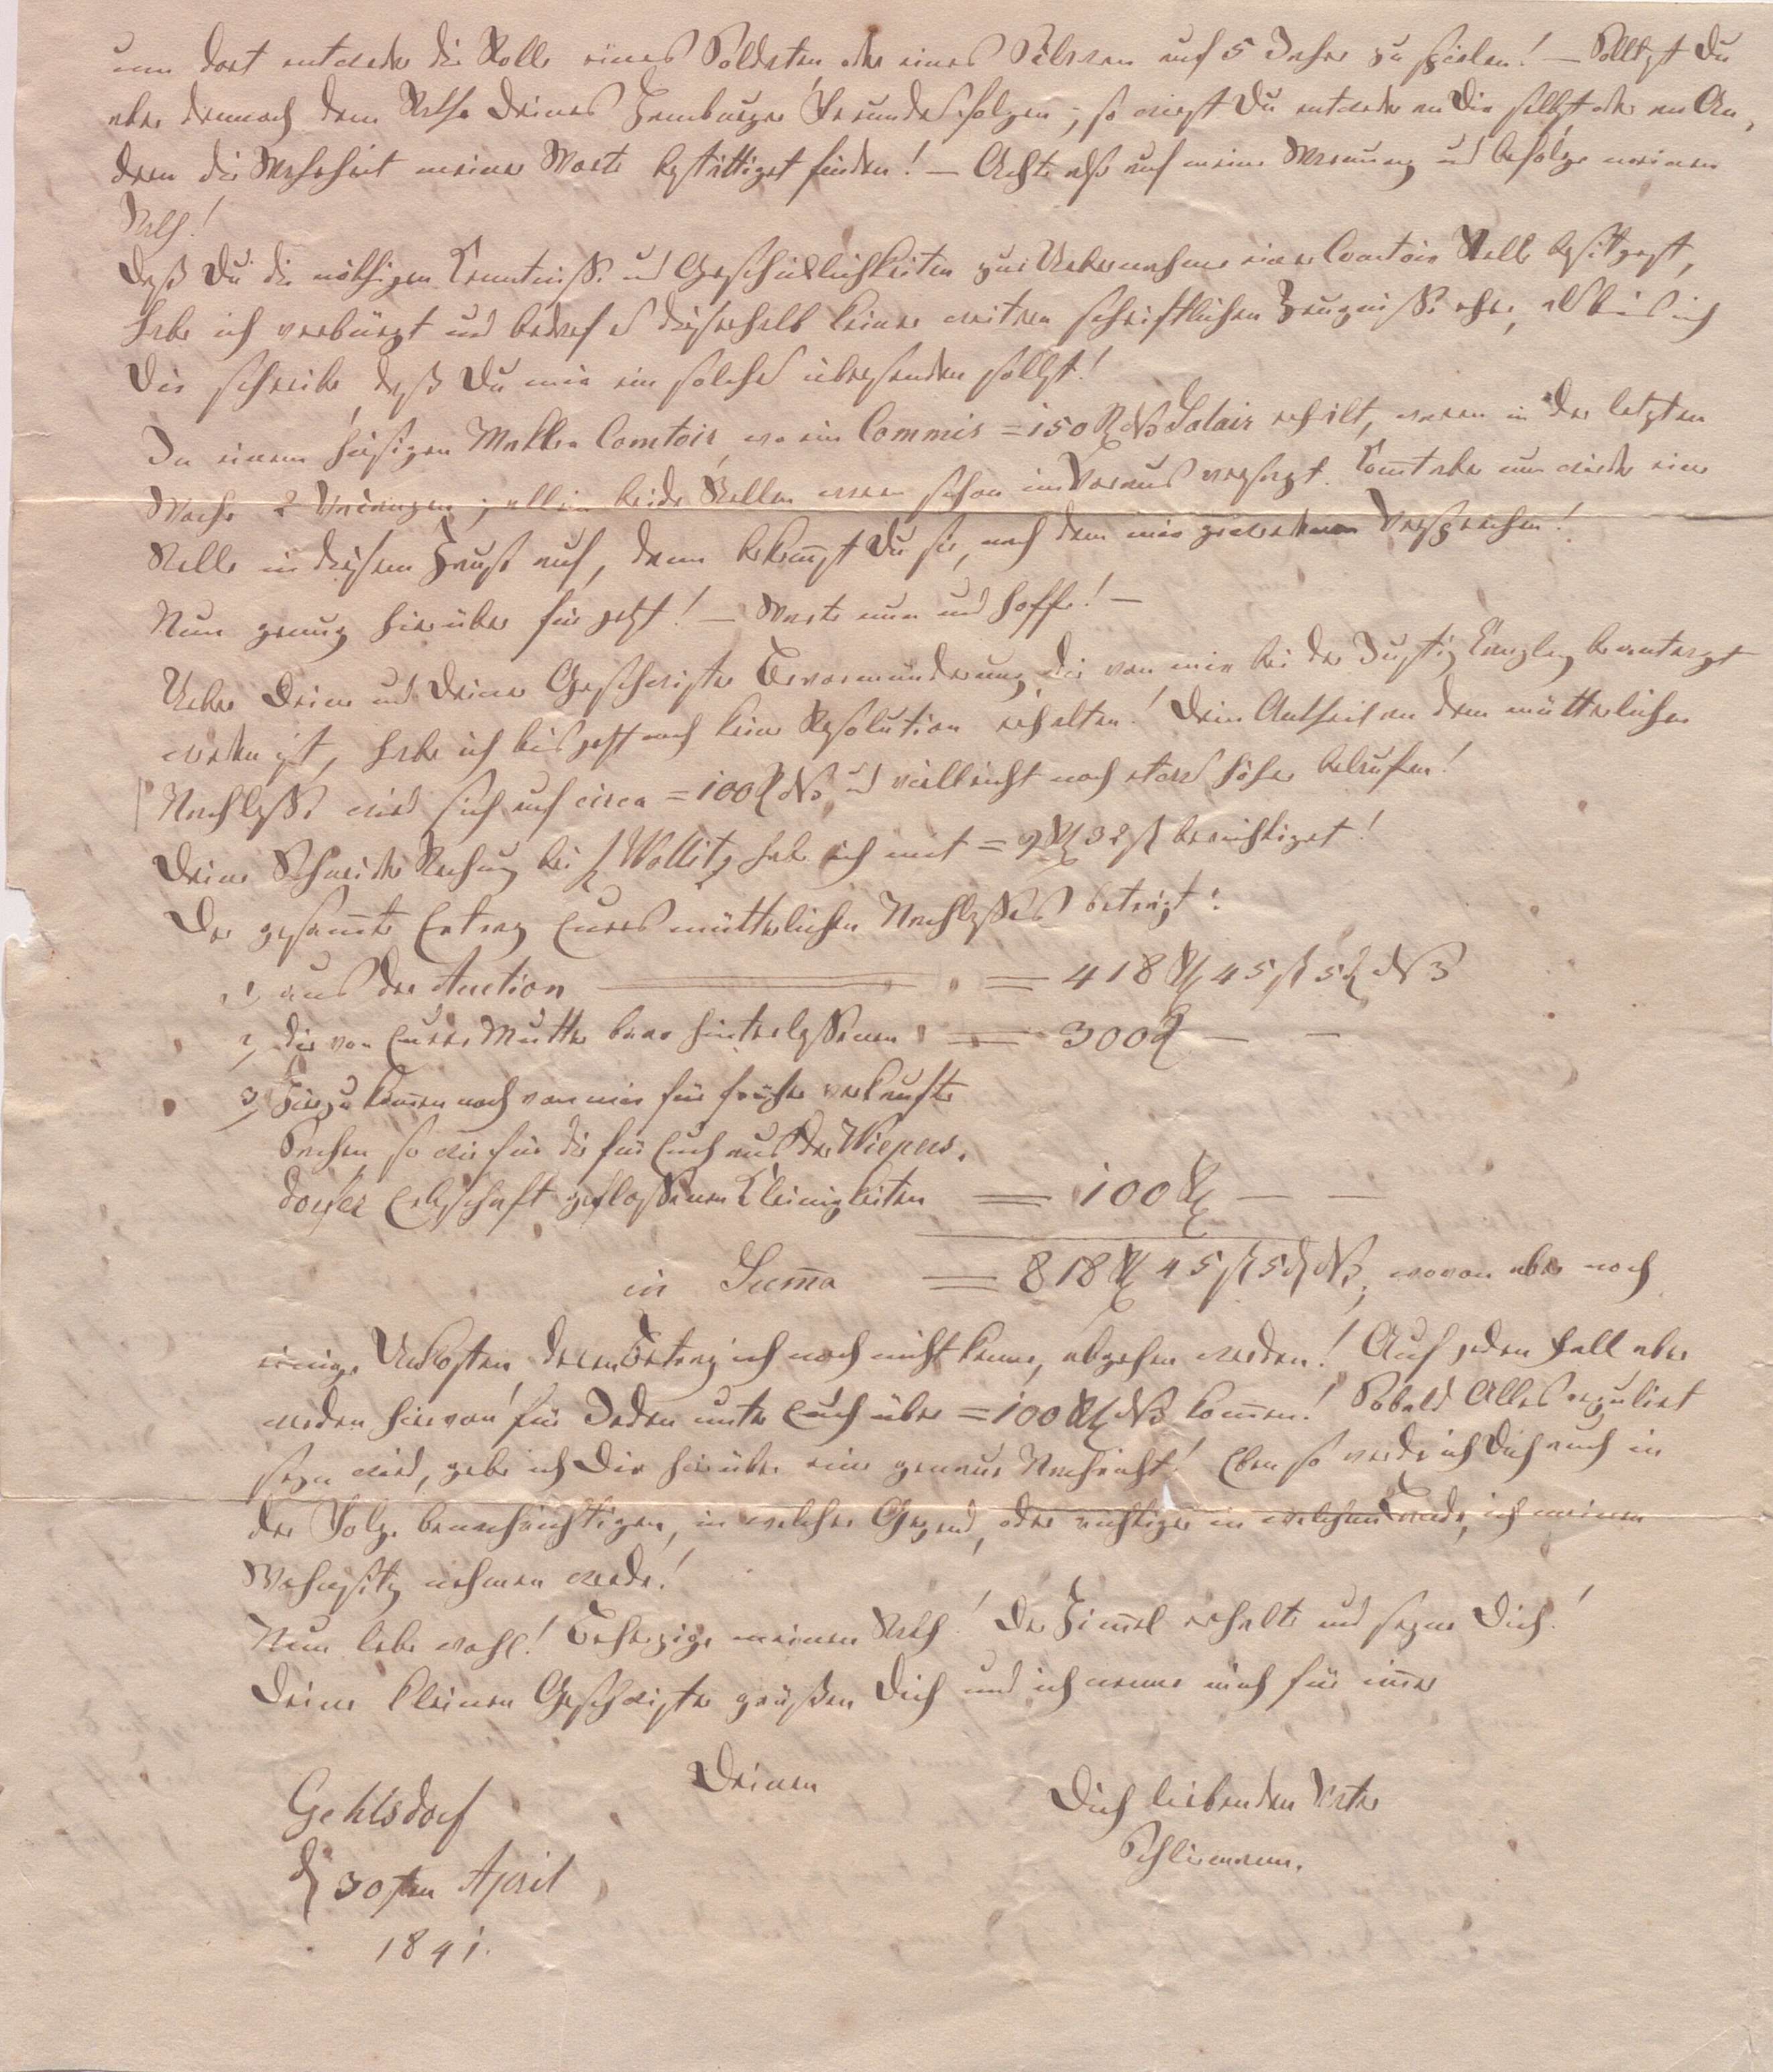 um dort entweder die Rolle eines Soldaten oder eines Sclaven auf 5 Jahre zu spielen! — Solltest Du
aber dennoch dem Rathe Deines Hamburger Freundes folgen, so wirst Du entweder an Dir selbst oder an An-
dern die Wahrheit meiner Worte bestättiget finden! — Achte also auf meine Warnung und befolge meinen
Rath!
Daß Du die nöthigen Kenntniße und Geschicklichkeiten zur Uebernahme einer Comtoir Stelle besitzest,
habe ich verbürgt und bedarf es dieserhalb keiner weitern schriftlichen Zeugniße eher, als bis ich
Dir schreibe, daß Du mir ein solches übersenden sollst!
In einem hiesigen Comtoir, wo ein Commis = 150 Salair erhält, waren in der letzten
Woche 2 Vacanzen; allein beide Stellen waren schon im Voraus versagt. Kommt aber nun wieder eine
Stelle in diesem Hause auf, dann bekommst Du sie, nach dem mir gewordenen Versprechen!
Nun genug hierüber für jetzt! — Warte nun und hoffe! —
Ueber Deine und Deiner Geschwister Bevormünderung, die von mir bei der Justiz Canzley beantragt
worden ist, habe ich bis jetzt noch keine Resolution erhalten! Dein Antheil an dem mütterlichen
Nachlaße wird sich auf circa = 100 und vielleicht noch etwas höher belaufen!
Deine Schneider Rechnung bei Wollitz habe ich mit = 9 32 berichtiget!
Der gesammte Ertrag Eures mütterlichen Nachlaßes beträgt:
1, aus der Auction — = 418 45 5
2, die von Eurer Mutter baar hinterlaßenen = 300 — —
3, Hierzu kommen noch von mir für früher verkaufte
Sachen, so wie für die für Euch aus der
dorfer Erbschaft gefloßenen Kleinigkeiten = 100 — —
in Summa = 818 45 5, wovon aber noch
einige Unkosten, deren Betrag ich noch nicht kenne, abgehen werden! Auf jeden Fall aber
werden hiervon für Jeden unter Euch über = 100 kommen! Sobald Alles regulirt
seyn wird, gebe ich Dir hierüber eine genaue Nachricht! Eben so werde ich Dich auch in
der Folge benachrichtigen, in welcher Gegend, oder richtiger in welchem Lande, ich meinen
Wohnsitz nehmen werde!
Nun lebe wohl! Beherzige meinen Rath! Der Himmel erhalte und segne Dich!
Deine kleinen Geschwister grüßen Dich und ich nenne mich für immer
Deinen
Dich liebenden Vater
Schliemann.
Gehlsdorf
d 30sten April
1841.